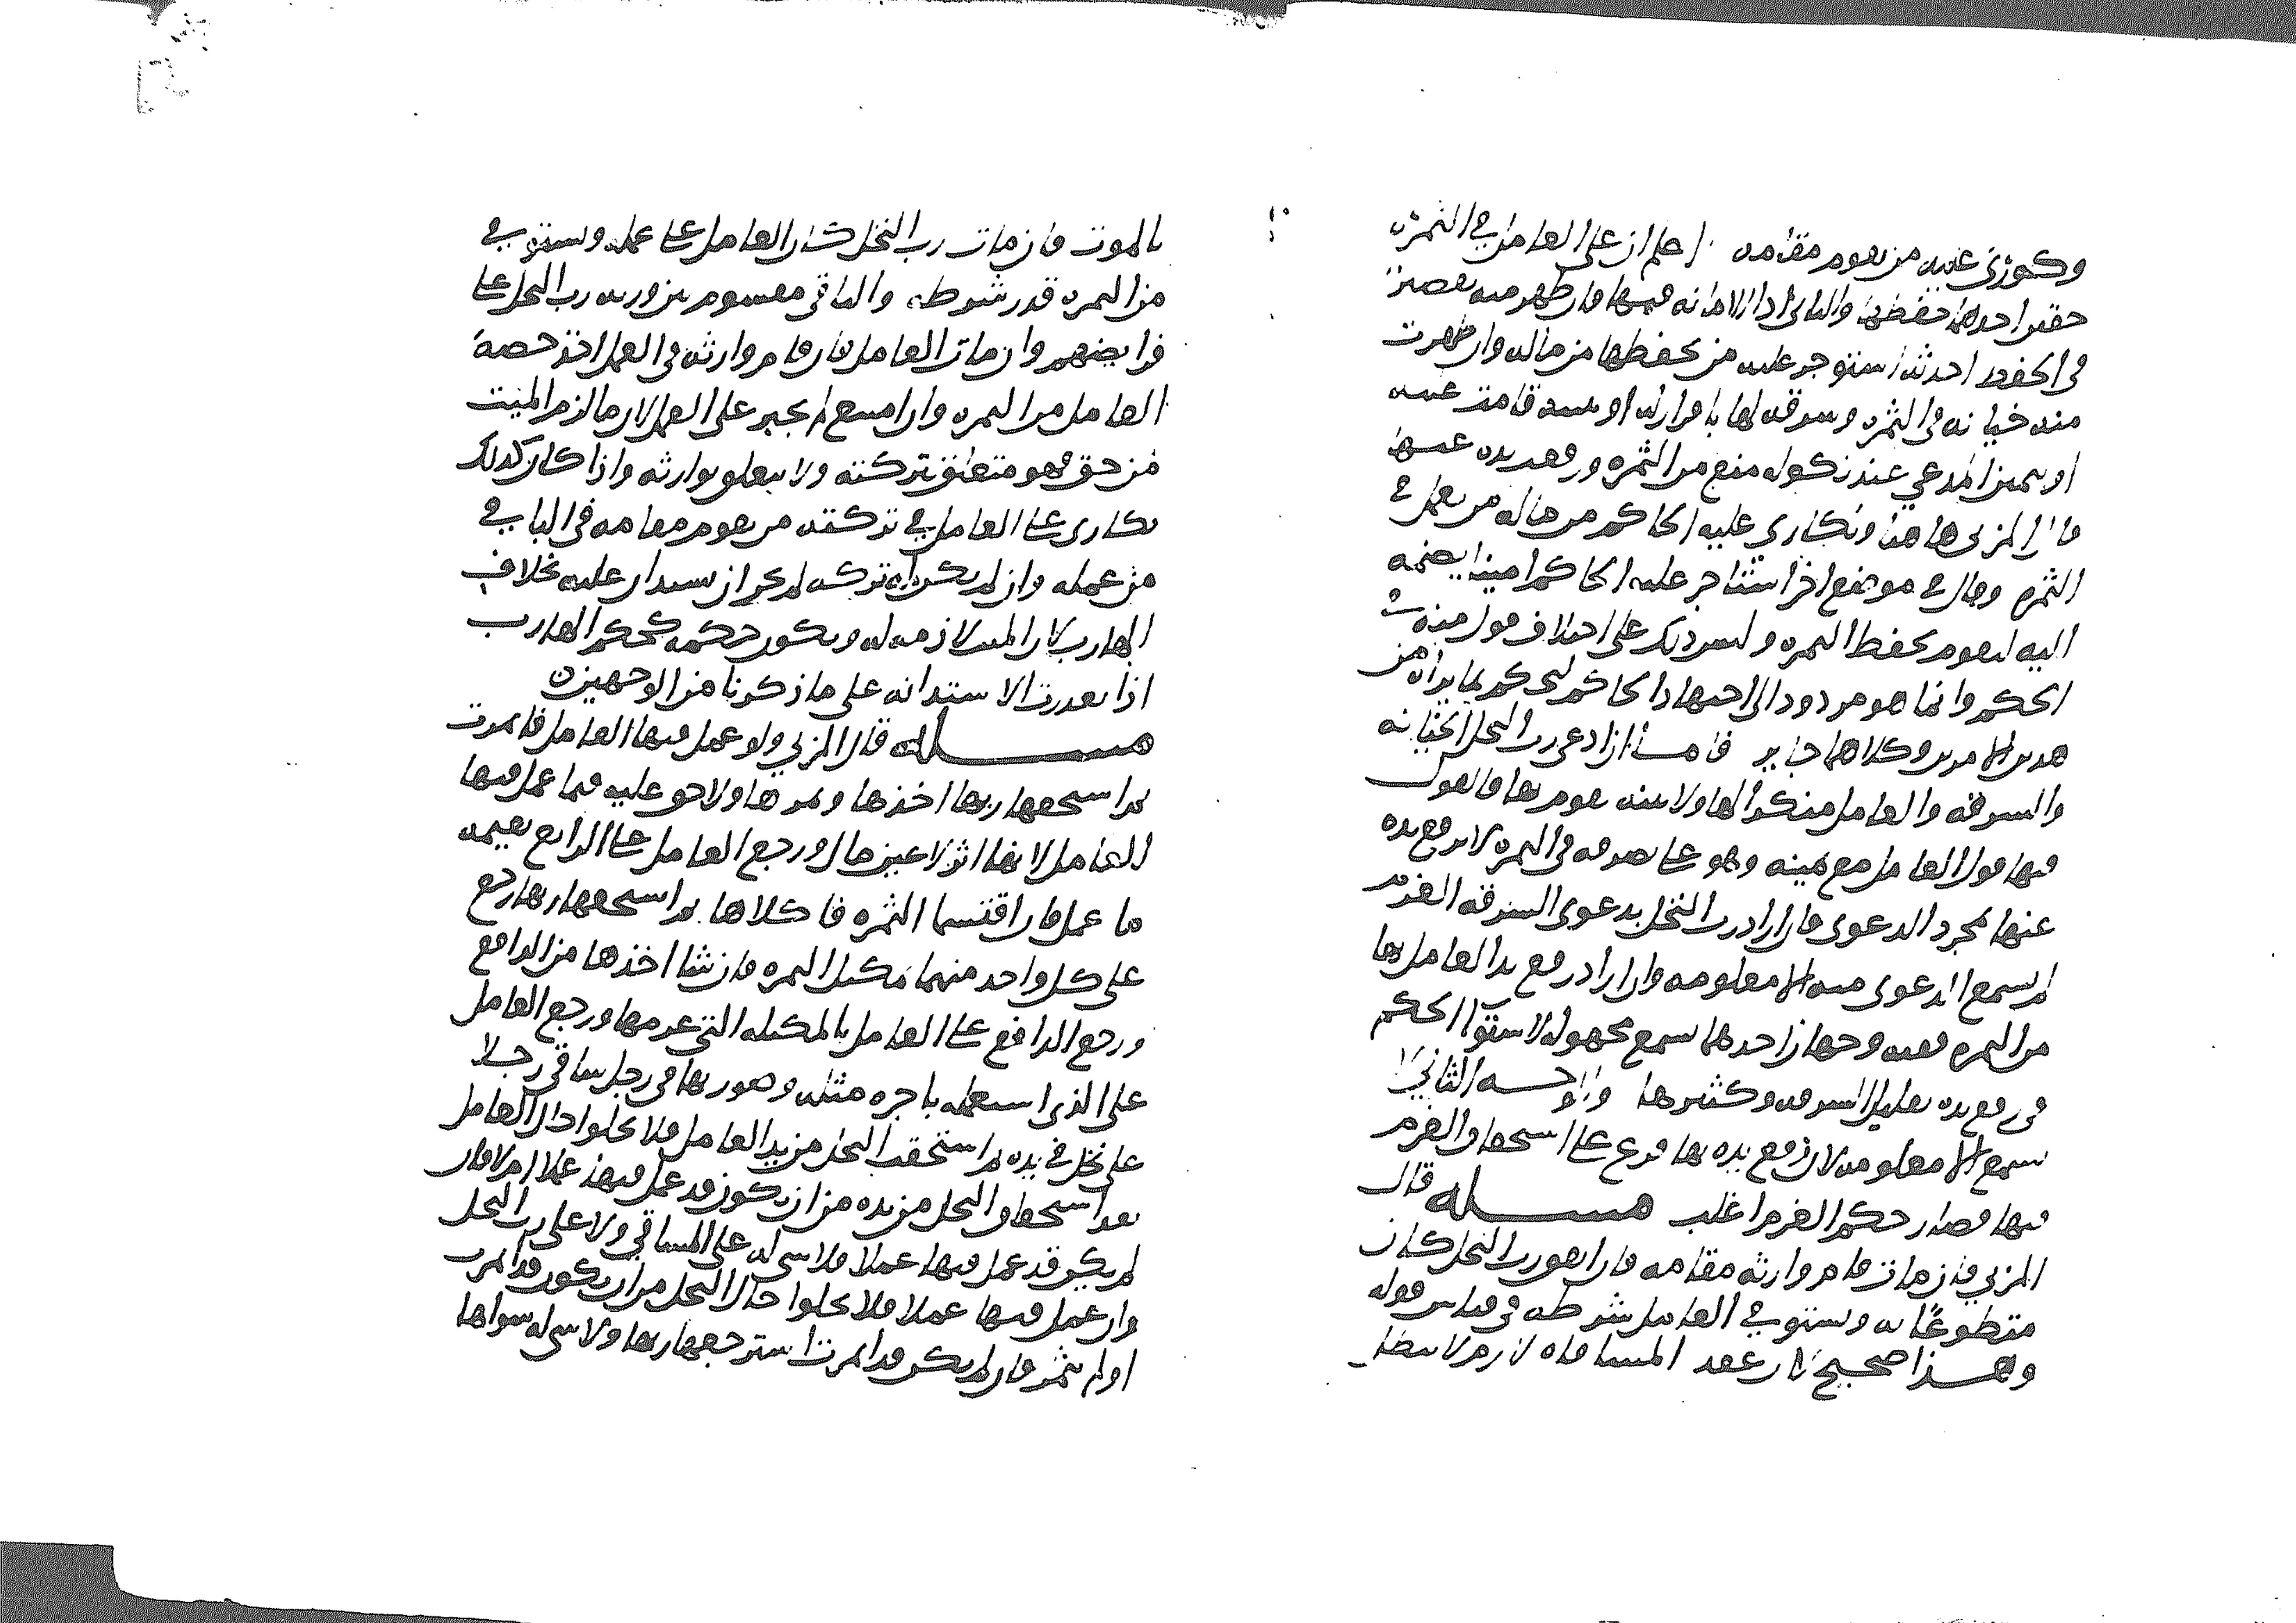 وكوزى عليه من يقوم مقامه اعلم ان على العامل في الثمره
حقين احدهما حفظها والثاني ادا الامانه فيها فان ظهر منه تقصير
في الحفظ احدثه استوجر عليه من يحفظها من ماله وان ظهرت
منه خيانه في الثمره وسرقه لها باقراره او ببينه قامت عليه
او يمين المدعي عند نكوله منع من الثمره ورفعت يده عنها
قال المزني هاهنا وتكارى عليه الحاكم من ماله من يعمل في
الثمره وقال في موضع اخر استاجر عليه الحاكم امينا يضمه
اليه ليقوم بحفظ الثمره وليس ذلك على اختلاف قول منه في
الحكم وانما هو مردود الى اجتهاد الحاكم ليحكم بما يراه من
هذين الامرين وكلاهما جايز فاما اذا ادعى رب النخل الخيانه
والسرقه والعامل منكر لها ولا بينه تقوم بها فالقول
فيها قول العامل مع يمينه وهو على تصرفه في الثمره لا ترفع يده
عنها بمجرد الدعوى فان اراد رب النخل بدعوى السرقه الغرم
لم يسمع الدعوى منه الا معلومه وان اراد رفع يد العامل بها
من الثمره ففيه وجهان احدهما يسمع مجهوله لاستوا الحكم
في رفع يده بقليل السرقه وكثيرها والوجه الثاني لا
يسمع الا معلومه لان رفع يده بها فرع على استحقاق الغرم
فيها فصار حكم الغرم اغلب مسله قال
المزني فان مات قام وارثه مقامه فان انفق رب النخل كان
متطوعا به ويستوفي العامل شرطه في قياس قوله
وهذا صحيح لان عقد المساقاه لازم لا ينفسخ
بالموت فان مات رب النخل كان العامل على عمله ويستوفي
من الثمره قدر شرطه والباقي مقسوم بين ورثه رب النخل على
فرايضهم وان مات العامل فان قام وارثه في العمل اخذ حصة
العامل من الثمره وان امتنع لم يجبر على العمل لان ما لزم الميت
من حق فهو متعلق بتركته ولا يتعلق بوارثه واذا كان كذلك
تكارى على العامل في تركته من يقوم مقامه في الباقي
من عمله وان لم يكن له تركه لم يجز ان يستدان عليه بخلاف
الهارب لان الميت لا ذمه له ويكون حكمه كحكم الهارب
اذا تعذرت الاستدانه على ما ذكرنا من الوجهين
مسله قال المزني ولو عمل فيها العامل فاثمرت
ثم استحقها ربها اخذها وثمرها ولا حق عليه فيما عمل فيها
العامل لانها اثر لا عين مال ورجع العامل على الدافع بقيمه
ما عمل فان اقتسما الثمره فاكلاها ثم استحقها ربها رجع
على كل واحد منهما بمكيلة الثمره فان شا اخذها من الدافع
ورجع الدافع على العامل بالمكيله التي غرمها ورجع العامل
على الذي استعمله باجره مثله وصورتها في رجل ساقى رجلا
على نخل في يده ثم استحقت النخل من يد العامل فلا يخلوا حال العامل
بعد استحقاق النخل من يده من ان يكون قد عمل فيها عملا ام لا فان
لم يكن قد عمل فيها عملا فلا شي له على المساقي ولا على رب النخل
وان عمل فيها عملا فلا يخلوا حال النخل من ان يكون قد اثمرت
او لم يثمر فان لم يكن قد اثمرت استرجعها ربها ولا شي له سواها